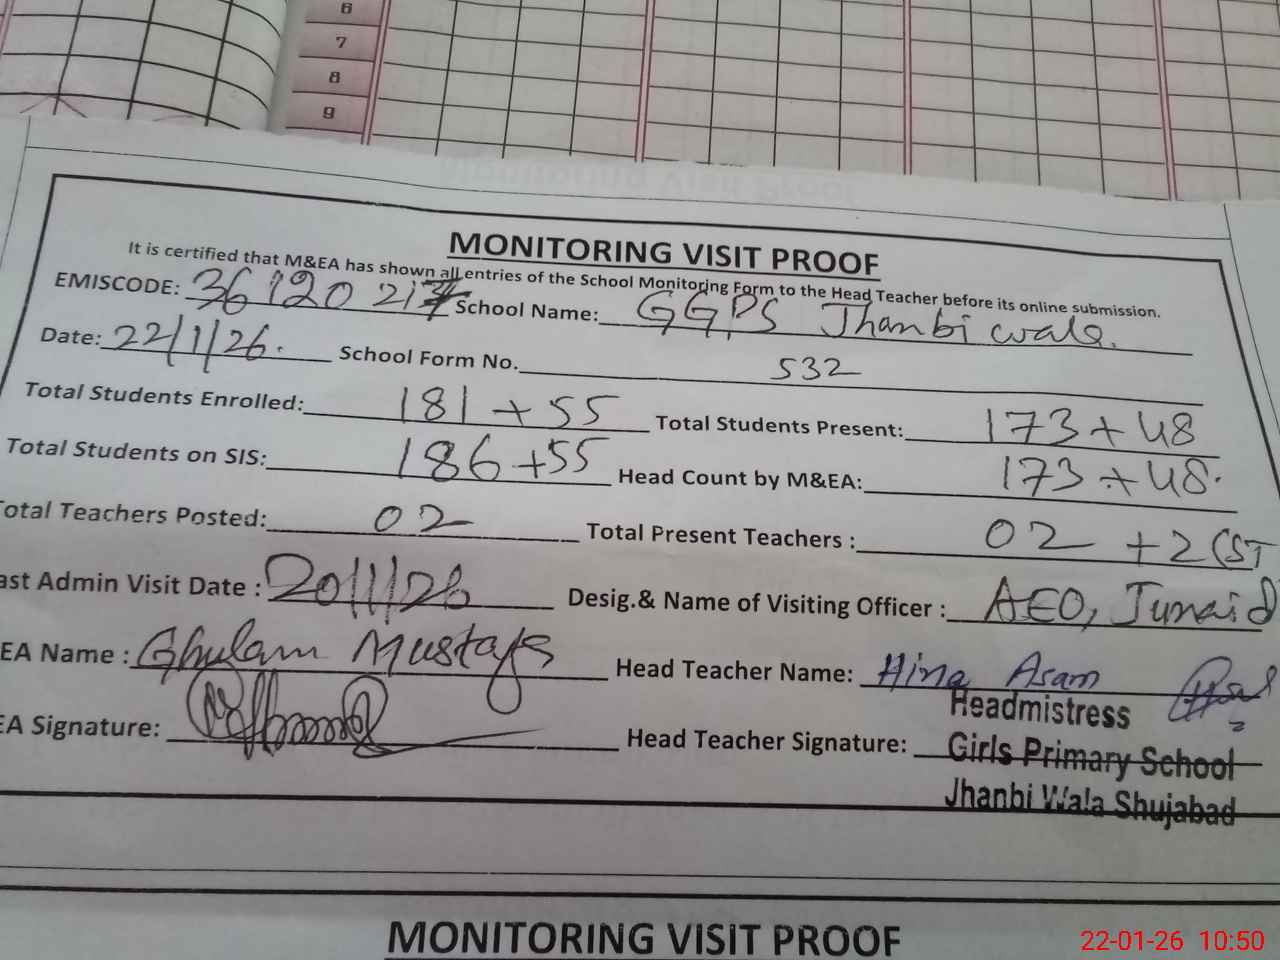 6
7
8
9
MONITORING VISIT PROOF
It is certified that M&EA has shown all entries of the School Monitoring Form to the Head Teacher before its online submission.
EMISCODE: 36120217 School Name: GGPS Jhanbi wala.
Date: 22/1/26. School Form No. 532
Total Students Enrolled: 181+55 Total Students Present: 173+48
Total Students on SIS: 186+55 Head Count by M&EA: 173+48.
Total Teachers Posted: 02 Total Present Teachers : 02 +2(ST
ast Admin Visit Date : 20/1/26 Desig.& Name of Visiting Officer : AEO, Junaid
EA Name : Ghulam Mustafa Head Teacher Name: Hina Asam
EA Signature: Head Teacher Signature:
Headmistress
Girls Primary School
Jhanbi Wala Shujabad
MONITORING VISIT PROOF
22-01-26 10:50